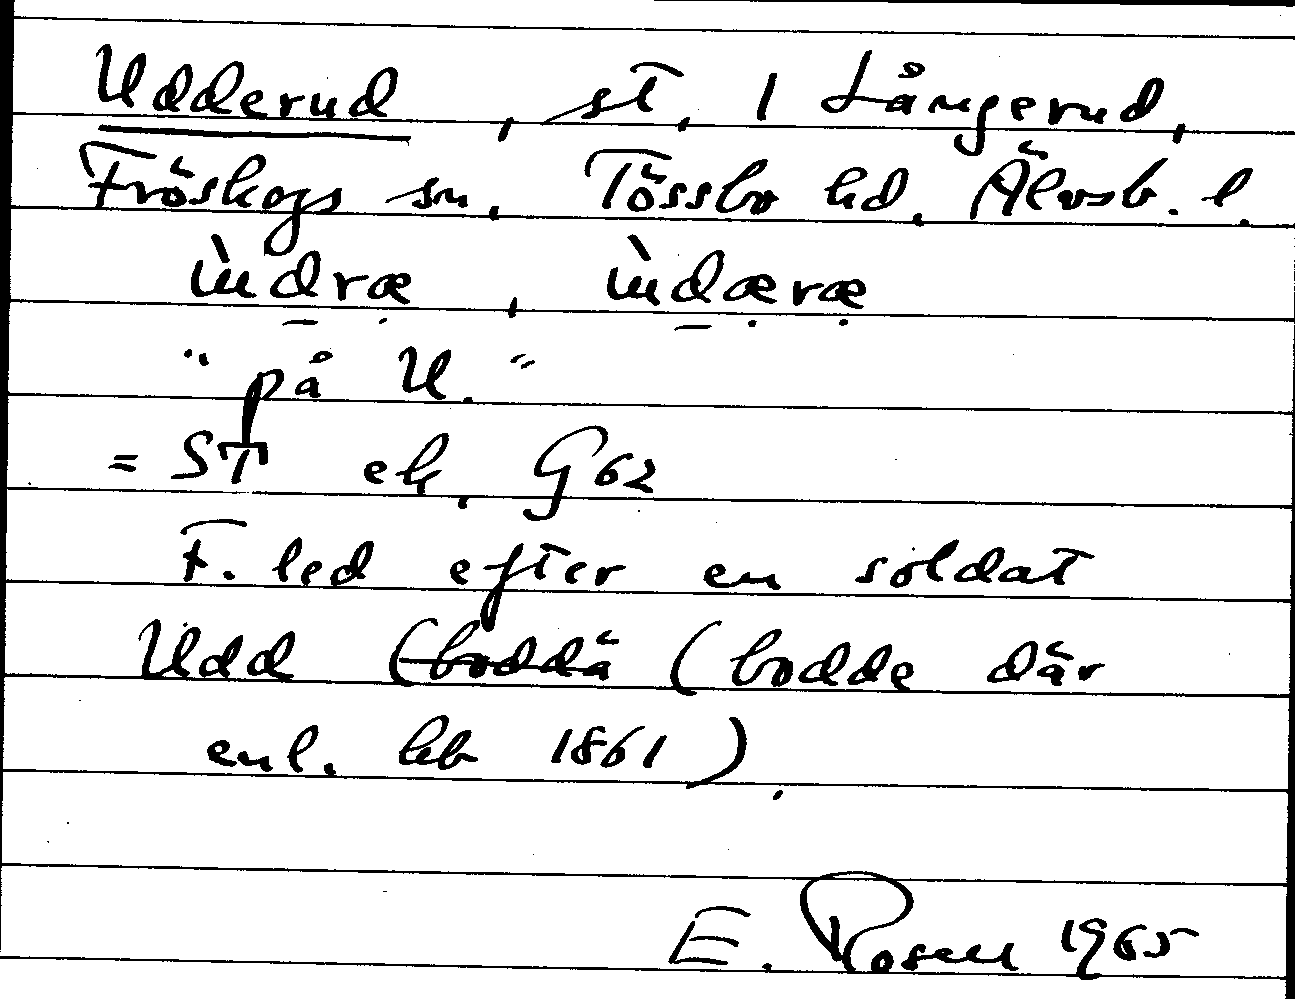 Udderud, st, 1 Långerud,
Fröskogs sn. Tössbo hd. Älvsb. l.
ùdræ, ùdæræ
"på U."
= ST ek. G62
F. led efter en soldat
Udd (boddä (bodde där
enl. kb 1861).
E. Rosell 1965